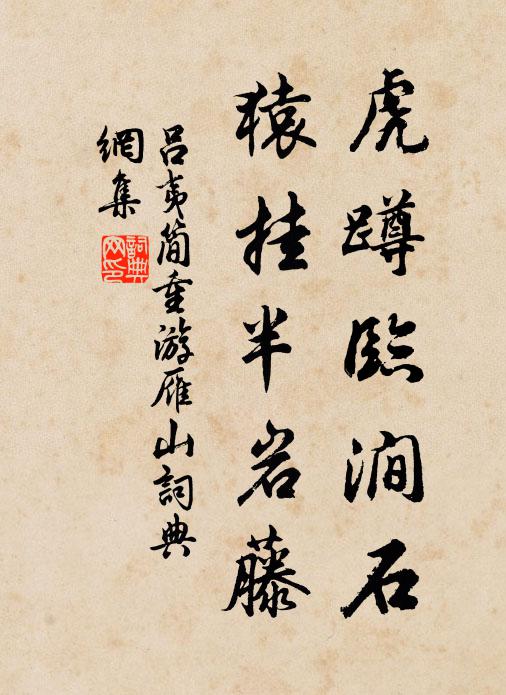 虎蹲臨澗石
猿挂半岩藤
吕夷简重游雁山詞典
網集
詞典网印